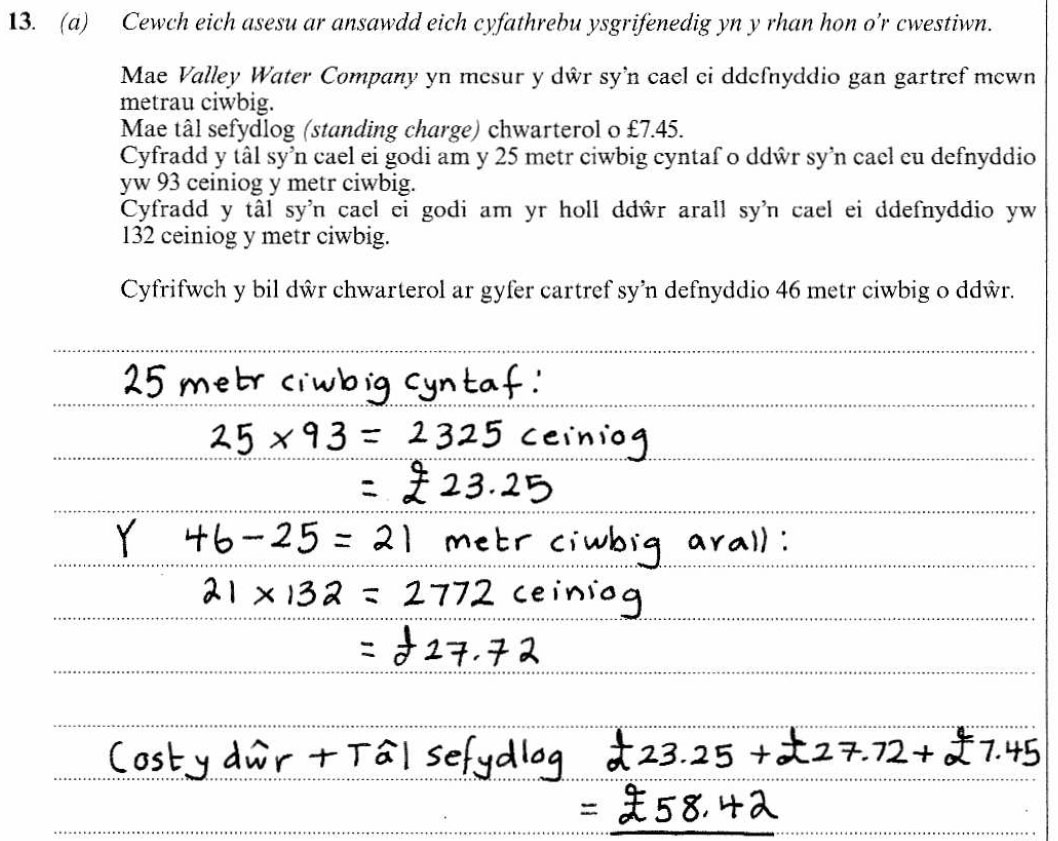 13. (a) Cewch eich asesu ar ansawdd eich cyfathrebu ysgrifenedig yn y rhan hon o'r cwestiwn.
Mae Valley Water Company yn mesur y dŵr sy'n cael ei ddefnyddio gan gartref mewn
metrau ciwbig.
Mae tâl sefydlog (standing charge) chwarterol o £7.45.
Cyfradd y tâl sy'n cael ei godi am y 25 metr ciwbig cyntaf o ddŵr sy'n cael eu defnyddio
yw 93 ceiniog y metr ciwbig.
Cyfradd y tâl sy'n cael ei godi am yr holl ddŵr arall sy'n cael ei ddefnyddio yw
132 ceiniog y metr ciwbig.
Cyfrifwch y bil dŵr chwarterol ar gyfer cartref sy'n defnyddio 46 metr ciwbig o ddŵr.
25 metr ciwbig cyntaf:
25 × 93 = 2325 ceiniog
= £23.25
Y 46 - 25 = 21 metr ciwbig arall:
21 × 132 = 2772 ceiniog
= £27.72
Cost y dŵr + Tâl sefydlog £23.25 + £27.72 + £7.45
= £58.42